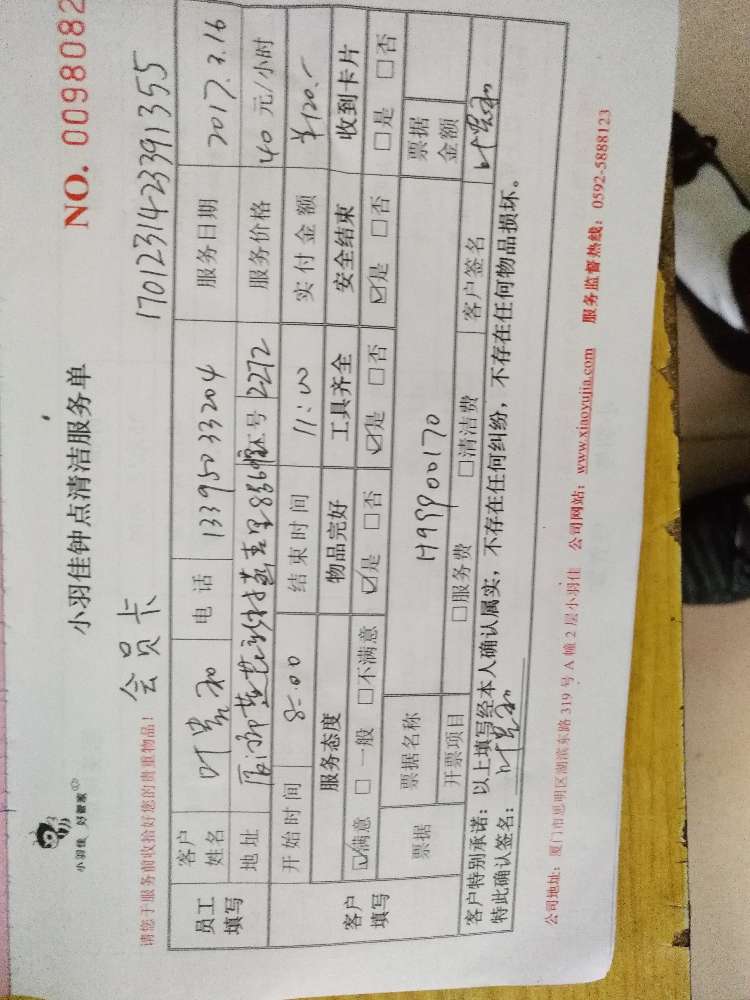 小羽佳 好管家
小羽佳钟点清洁服务单
NO. 0098082
请您于服务前收拾好您的贵重物品!
会员卡
1701231423391355
员工填写
客户姓名 叶 电话 13395033204 服务日期 2017.3.16
地址 服务价格 40 元/小时
号 2272
开始时间 8:00 结束时间 11:00 实付金额 ¥120.-
客户填写
服务态度 物品完好 工具齐全 安全结束 收到卡片
☑满意 □一般 □不满意 ☑是 □否 ☑是 □否 ☑是 □否 □是 □否
票据 票据名称 票据金额
开票项目 □服务费 □清洁费 客户签名
客户特别承诺：以上填写经本人确认属实，不存在任何纠纷，不存在任何物品损坏。
特此确认签名：
公司地址：厦门市思明区湖滨东路 319 号 A 幢 2 层小羽佳 公司网站：www.xiaoyujia.com 服务监督热线：0592-5888123